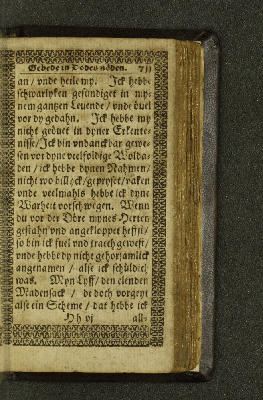 Gebede in Dodes nöden.
an / vnde heile my. Jck hebbe
schwarlyken gesundiget in my-
nem gantzen Leuende / vnde övel
vor dy gedahn. Jck hebbe my
nicht geövet in dyner Erkente-
nisse / Jck bin vndanckbar gewe-
sen vor dyne veelfoldige Wolda-
den / ick hebbe dynen Nahmen /
nicht wo billick / gepryset / vaken
vnde veelmahls hebbe ick dyne
Warheit vorschwegen. Wenn
du vor der Döre mynes Herten
gestahn vnd angekloppet heffst /
so bin ick fuel vnd traech gewest /
vnde hebbe dy nicht gehorsamlick
angenamen / alse ick schüldich
was. Myn Lyff / den elenden
Madensack / de doch vorgeyt
alse ein Scheme / dat hebbe ick
Hh vj all-